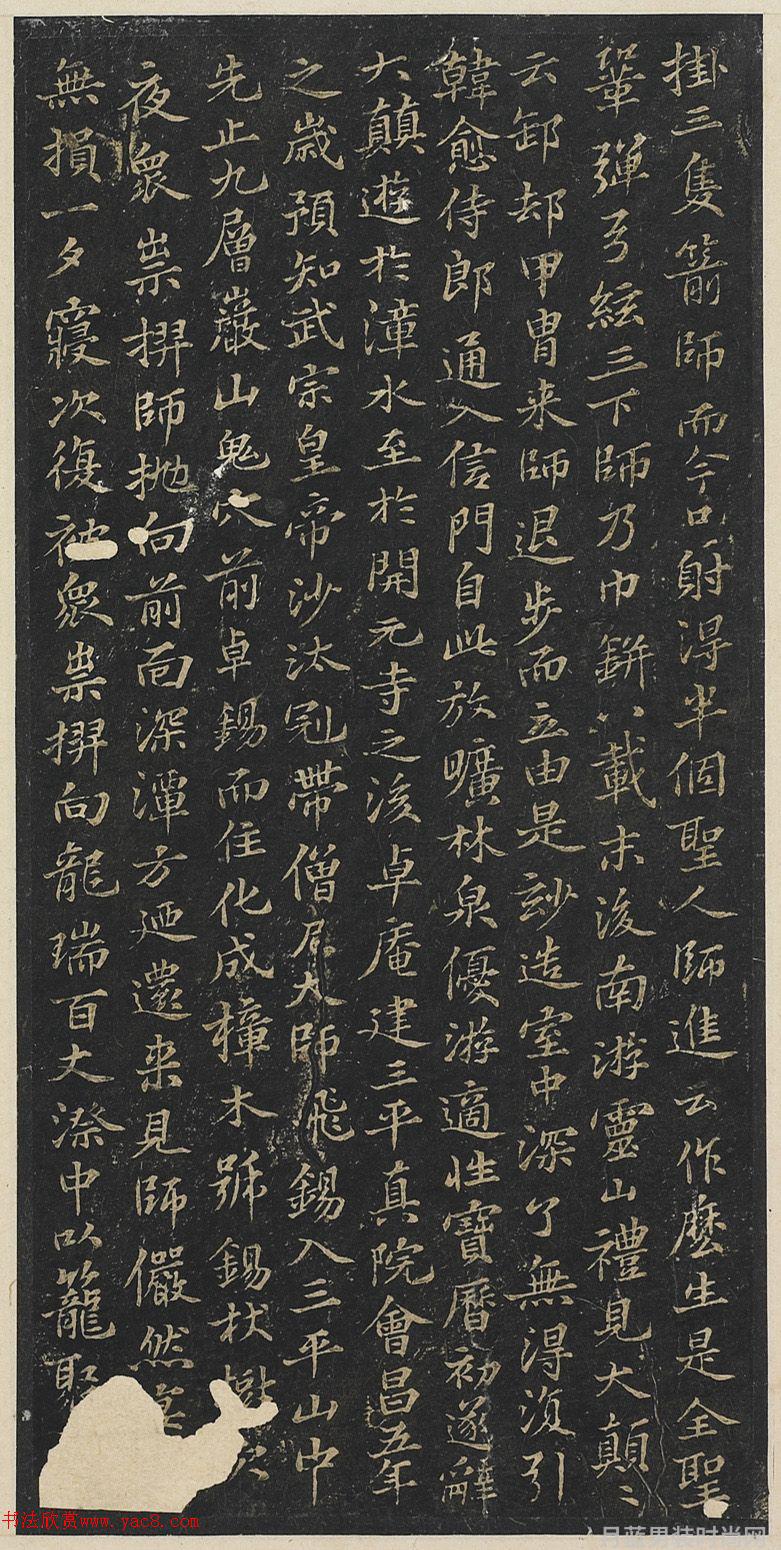 掛三隻箭師而今只射得半個聖人師進云作麽生是全聖
鞏彈弓絃三下師乃巾缾八載末後南游靈山禮見大顛〻
云卸却甲胄来師退步而立由是玅造室中深了無得後引
韓愈侍郎通入信門自此放曠林泉優游適性寶曆初遂辭
大顛遊於漳水至於開元寺之後卓庵建三平真院會昌五年
之歲預知武宗皇帝沙汰冠帶僧尼大師飛錫入三平山中
先止九層巖山鬼穴前卓錫而住化成樟木號錫杖樹
夜衆祟舁師抛向前面深潭方迊還来見師儼然
無損一夕寢次復被衆祟舁向龍瑞百丈漈中以籠
书法欣赏www.yac8.com